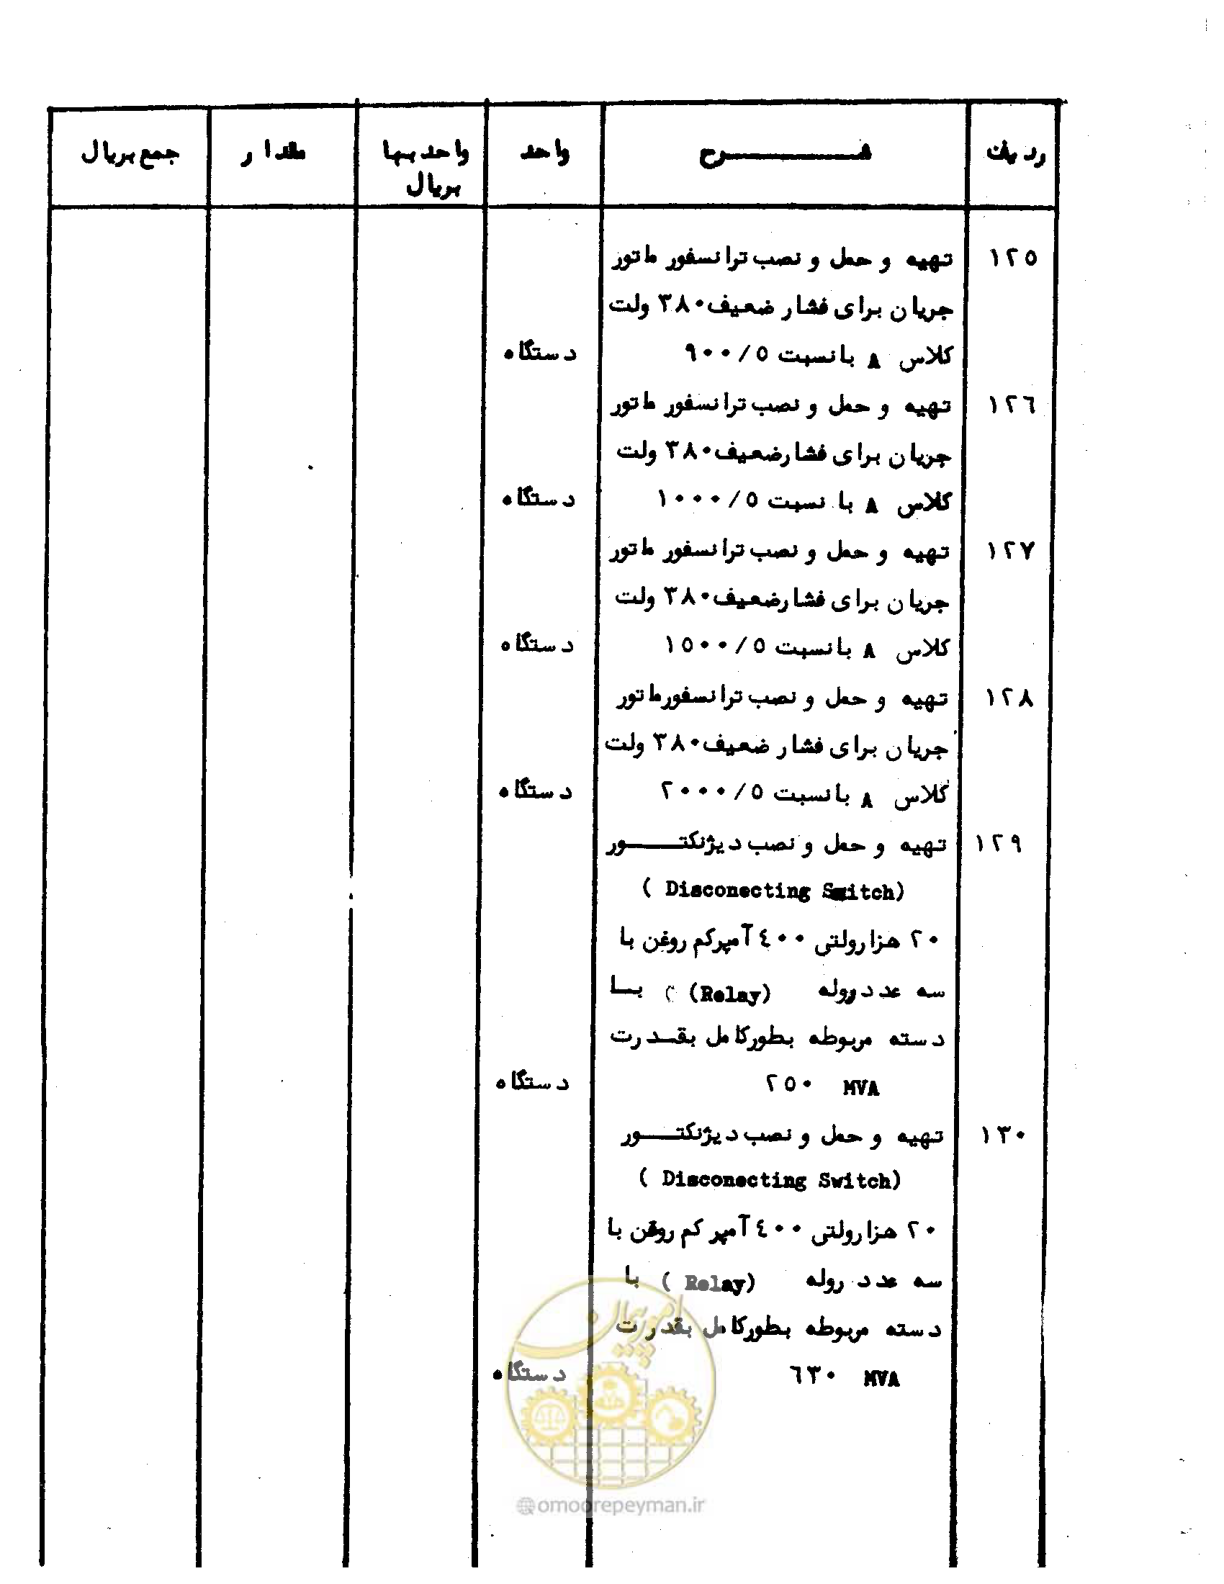 ردیف شـــــرح واحد واحدبها مقدار جمع بریال
بریال
١٢٥ تهیه و حمل و نصب ترانسفورماتور
جریان برای فشار ضعیف ٣٨٠ ولت
کلاس A بانسبت ٩٠٠/٥ دستگاه
١٢٦ تهیه و حمل و نصب ترانسفورماتور
جریان برای فشارضعیف ٣٨٠ ولت
کلاس A با نسبت ١٠٠٠/٥ دستگاه
١٢٧ تهیه و حمل و نصب ترانسفورماتور
جریان برای فشارضعیف ٣٨٠ ولت
کلاس A بانسبت ١٥٠٠/٥ دستگاه
١٢٨ تهیه و حمل و نصب ترانسفورماتور
جریان برای فشار ضعیف ٣٨٠ ولت
کلاس A بانسبت ٢٠٠٠/٥ دستگاه
١٢٩ تهیه و حمل و نصب دیژنکتـــور
( Disconecting Switch)
٢٠ هزارولتی ٤٠٠ آمپرکم روغن با
سه عدد روله (Relay) بـا
دسته مربوطه بطورکامل بقـدرت
٢٥٠ MVA دستگاه
١٣٠ تهیه و حمل و نصب دیژنکتـــور
( Disconecting Switch)
٢٠ هزارولتی ٤٠٠ آمپر کم روغن با
سه عدد روله ( Relay) با
دسته مربوطه بطورکامل بقدرت
٦٣٠ MVA دستگاه
امور پیمان
@omoorepeyman.ir